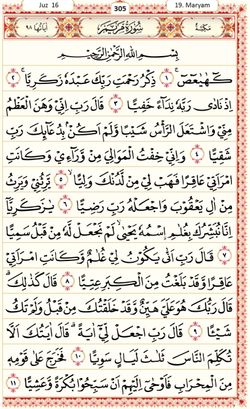 Juz 16
305
19. Maryam
مكية
سورة مريم
آياتها ٩٨
بِسْمِ اللهِ الرَّحْمٰنِ الرَّحِيْمِ
كٓهٰيٰعٓصٓ ۝١ ذِكْرُ رَحْمَتِ رَبِّكَ عَبْدَهٗ زَكَرِيَّا ۝٢
اِذْ نَادٰى رَبَّهٗ نِدَآءً خَفِيًّا ۝٣ قَالَ رَبِّ اِنِّيْ وَهَنَ الْعَظْمُ
مِنِّيْ وَاشْتَعَلَ الرَّأْسُ شَيْبًا وَّلَمْ اَكُنْۢ بِدُعَآئِكَ رَبِّ
شَقِيًّا ۝٤ وَاِنِّيْ خِفْتُ الْمَوَالِيَ مِنْ وَّرَآءِيْ وَكَانَتِ
امْرَاَتِيْ عَاقِرًا فَهَبْ لِيْ مِنْ لَّدُنْكَ وَلِيًّا ۝٥ يَّرِثُنِيْ وَيَرِثُ
مِنْ اٰلِ يَعْقُوْبَ وَاجْعَلْهُ رَبِّ رَضِيًّا ۝٦ يٰزَكَرِيَّآ
اِنَّا نُبَشِّرُكَ بِغُلٰمِ ۨاسْمُهٗ يَحْيٰى لَمْ نَجْعَلْ لَّهٗ مِنْ قَبْلُ سَمِيًّا
۝٧ قَالَ رَبِّ اَنّٰى يَكُوْنُ لِيْ غُلٰمٌ وَّكَانَتِ امْرَاَتِيْ
عَاقِرًا وَّقَدْ بَلَغْتُ مِنَ الْكِبَرِ عِتِيًّا ۝٨ قَالَ كَذٰلِكَ
قَالَ رَبُّكَ هُوَ عَلَيَّ هَيِّنٌ وَّقَدْ خَلَقْتُكَ مِنْ قَبْلُ وَلَمْ تَكُ
شَيْئًا ۝٩ قَالَ رَبِّ اجْعَلْ لِّيْٓ اٰيَةً قَالَ اٰيَتُكَ اَلَّا
تُكَلِّمَ النَّاسَ ثَلٰثَ لَيَالٍ سَوِيًّا ۝١٠ فَخَرَجَ عَلٰى قَوْمِهٖ
مِنَ الْمِحْرَابِ فَاَوْحٰٓى اِلَيْهِمْ اَنْ سَبِّحُوْا بُكْرَةً وَّعَشِيًّا ۝١١